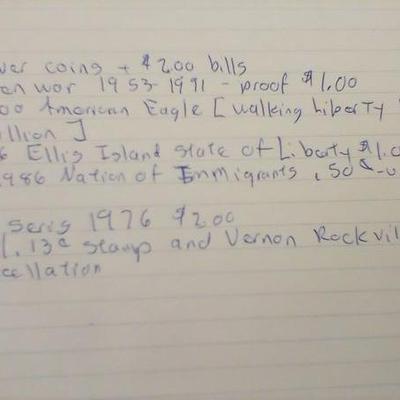 ver coins + $2.00 bills
ean wor 1953-1991 - proof $1.00
00 American Eagle [walking Liberty
llion]
6 Ellis Island state of Liberty $1.0
1986 Nation of Immigrants, 50¢-u
seris 1976 $2.00
1. 13¢ stamp and Vernon Rockvil
cellation